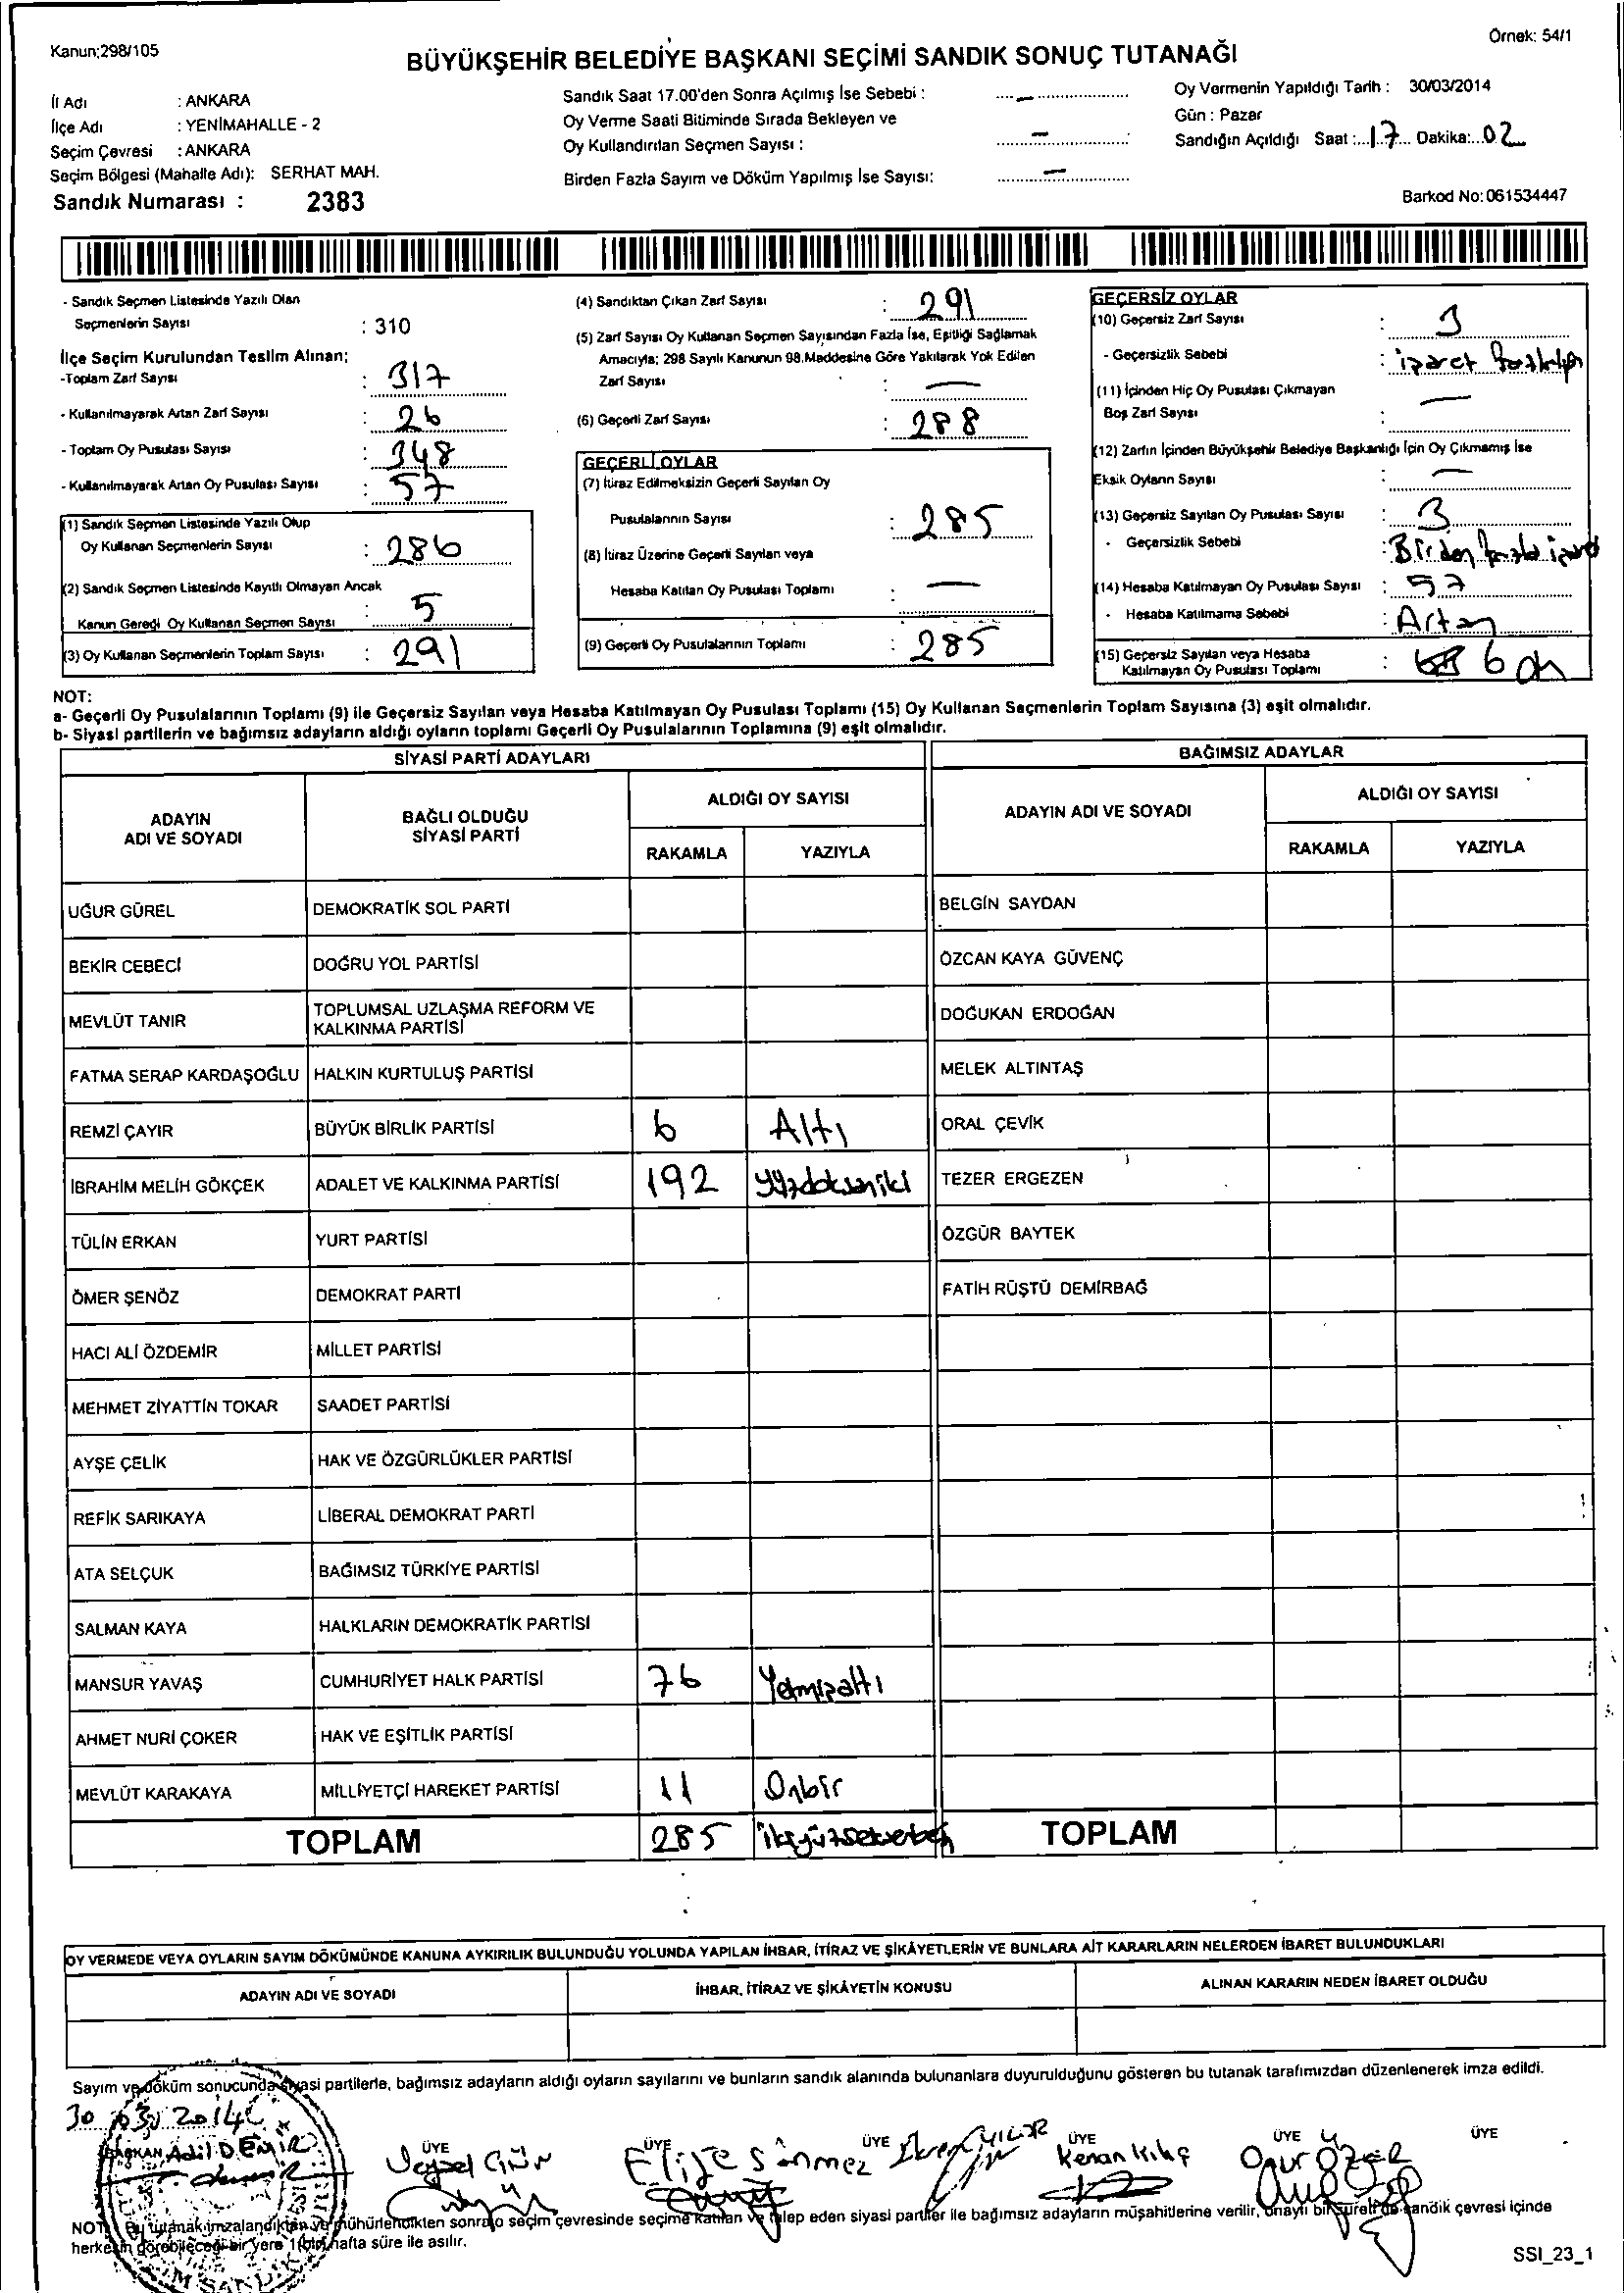 Kanun;298/105
Örnek: 54/1
BÜYÜKŞEHİR BELEDİYE BAŞKANI SEÇİMİ SANDIK SONUÇ TUTANAĞI
İl Adı : ANKARA
İlçe Adı : YENİMAHALLE - 2
Seçim Çevresi : ANKARA
Seçim Bölgesi (Mahalle Adı): SERHAT MAH.
Sandık Numarası : 2383
Sandık Saat 17.00'den Sonra Açılmış İse Sebebi : —
Oy Verme Saati Bitiminde Sırada Bekleyen ve
Oy Kullandırılan Seçmen Sayısı : —
Birden Fazla Sayım ve Döküm Yapılmış İse Sayısı: —
Oy Vermenin Yapıldığı Tarih : 30/03/2014
Gün : Pazar
Sandığın Açıldığı Saat : 17 Dakika: 02
Barkod No: 061534447
- Sandık Seçmen Listesinde Yazılı Olan
Seçmenlerin Sayısı : 310
İlçe Seçim Kurulundan Teslim Alınan;
-Toplam Zarf Sayısı : 317
- Kullanılmayarak Artan Zarf Sayısı : 26
- Toplam Oy Pusulası Sayısı : 348
- Kullanılmayarak Artan Oy Pusulası Sayısı : 57
(1) Sandık Seçmen Listesinde Yazılı Olup
Oy Kullanan Seçmenlerin Sayısı : 286
(2) Sandık Seçmen Listesinde Kayıtlı Olmayan Ancak
Kanun Gereği Oy Kullanan Seçmen Sayısı : 5
(3) Oy Kullanan Seçmenlerin Toplam Sayısı : 291
(4) Sandıktan Çıkan Zarf Sayısı : 291
(5) Zarf Sayısı Oy Kullanan Seçmen Sayısından Fazla İse, Eşitliği Sağlamak
Amacıyla; 298 Sayılı Kanunun 98.Maddesine Göre Yakılarak Yok Edilen
Zarf Sayısı : —
(6) Geçerli Zarf Sayısı : 288
GEÇERLİ OYLAR
(7) İtiraz Edilmeksizin Geçerli Sayılan Oy
Pusulalarının Sayısı : 285
(8) İtiraz Üzerine Geçerli Sayılan veya
Hesaba Katılan Oy Pusulası Toplamı : —
(9) Geçerli Oy Pusulalarının Toplamı : 285
GEÇERSİZ OYLAR
(10) Geçersiz Zarf Sayısı : 3
- Geçersizlik Sebebi : işaret
(11) İçinden Hiç Oy Pusulası Çıkmayan
Boş Zarf Sayısı : —
(12) Zarfın İçinden Büyükşehir Belediye Başkanlığı İçin Oy Çıkmamış İse
Eksik Oyların Sayısı : —
(13) Geçersiz Sayılan Oy Pusulası Sayısı : 3
- Geçersizlik Sebebi : Birden fazla işaret
(14) Hesaba Katılmayan Oy Pusulası Sayısı : 57
- Hesaba Katılmama Sebebi : Artan
(15) Geçersiz Sayılan veya Hesaba
Katılmayan Oy Pusulası Toplamı : 6
NOT:
a- Geçerli Oy Pusulalarının Toplamı (9) ile Geçersiz Sayılan veya Hesaba Katılmayan Oy Pusulası Toplamı (15) Oy Kullanan Seçmenlerin Toplam Sayısına (3) eşit olmalıdır.
b- Siyasi partilerin ve bağımsız adayların aldığı oyların toplamı Geçerli Oy Pusulalarının Toplamına (9) eşit olmalıdır.
SİYASİ PARTİ ADAYLARI BAĞIMSIZ ADAYLAR
ADAYIN
ADI VE SOYADI
BAĞLI OLDUĞU
SİYASİ PARTİ
ALDIĞI OY SAYISI
RAKAMLA YAZIYLA
ADAYIN ADI VE SOYADI
ALDIĞI OY SAYISI
RAKAMLA YAZIYLA
UĞUR GÜREL DEMOKRATİK SOL PARTİ BELGİN SAYDAN
BEKİR CEBECİ DOĞRU YOL PARTİSİ ÖZCAN KAYA GÜVENÇ
MEVLÜT TANIR TOPLUMSAL UZLAŞMA REFORM VE
KALKINMA PARTİSİ DOĞUKAN ERDOĞAN
FATMA SERAP KARDAŞOĞLU HALKIN KURTULUŞ PARTİSİ MELEK ALTINTAŞ
REMZİ ÇAYIR BÜYÜK BİRLİK PARTİSİ 6 Altı ORAL ÇEVİK
İBRAHİM MELİH GÖKÇEK ADALET VE KALKINMA PARTİSİ 192 yüzdoksaniki TEZER ERGEZEN
TÜLİN ERKAN YURT PARTİSİ ÖZGÜR BAYTEK
ÖMER ŞENÖZ DEMOKRAT PARTİ FATİH RÜŞTÜ DEMİRBAĞ
HACI ALİ ÖZDEMİR MİLLET PARTİSİ
MEHMET ZİYATTİN TOKAR SAADET PARTİSİ
AYŞE ÇELİK HAK VE ÖZGÜRLÜKLER PARTİSİ
REFİK SARIKAYA LİBERAL DEMOKRAT PARTİ
ATA SELÇUK BAĞIMSIZ TÜRKİYE PARTİSİ
SALMAN KAYA HALKLARIN DEMOKRATİK PARTİSİ
MANSUR YAVAŞ CUMHURİYET HALK PARTİSİ 76 Yetmişaltı
AHMET NURİ ÇOKER HAK VE EŞİTLİK PARTİSİ
MEVLÜT KARAKAYA MİLLİYETÇİ HAREKET PARTİSİ 11 Onbir
TOPLAM 285 ikiyüzseksenbeş TOPLAM
OY VERMEDE VEYA OYLARIN SAYIM DÖKÜMÜNDE KANUNA AYKIRILIK BULUNDUĞU YOLUNDA YAPILAN İHBAR, İTİRAZ VE ŞİKÂYETLERİN VE BUNLARA AİT KARARLARIN NELERDEN İBARET BULUNDUKLARI
ADAYIN ADI VE SOYADI İHBAR, İTİRAZ VE ŞİKÂYETİN KONUSU ALINAN KARARIN NEDEN İBARET OLDUĞU
Sayım ve döküm sonucunda siyasi partilerle, bağımsız adayların aldığı oyların sayılarını ve bunların sandık alanında bulunanlara duyurulduğunu gösteren bu tutanak tarafımızdan düzenlenerek imza edildi.
30 03 2014
BAŞKAN ÜYE ÜYE ÜYE ÜYE ÜYE ÜYE
Adil DEMİR Veysel GÜN Elife Sönmez Kenan Kılıç Onur ÖZER
NOT: Bu tutanak imzalandıktan ve mühürlendikten sonra o seçim çevresinde seçime katılan ve talep eden siyasi partiler ile bağımsız adayların müşahitlerine verilir, onaylı bir sureti de sandık çevresi içinde
herkesin görebileceği bir yere 1 (bir) hafta süre ile asılır.
SSI_23_1